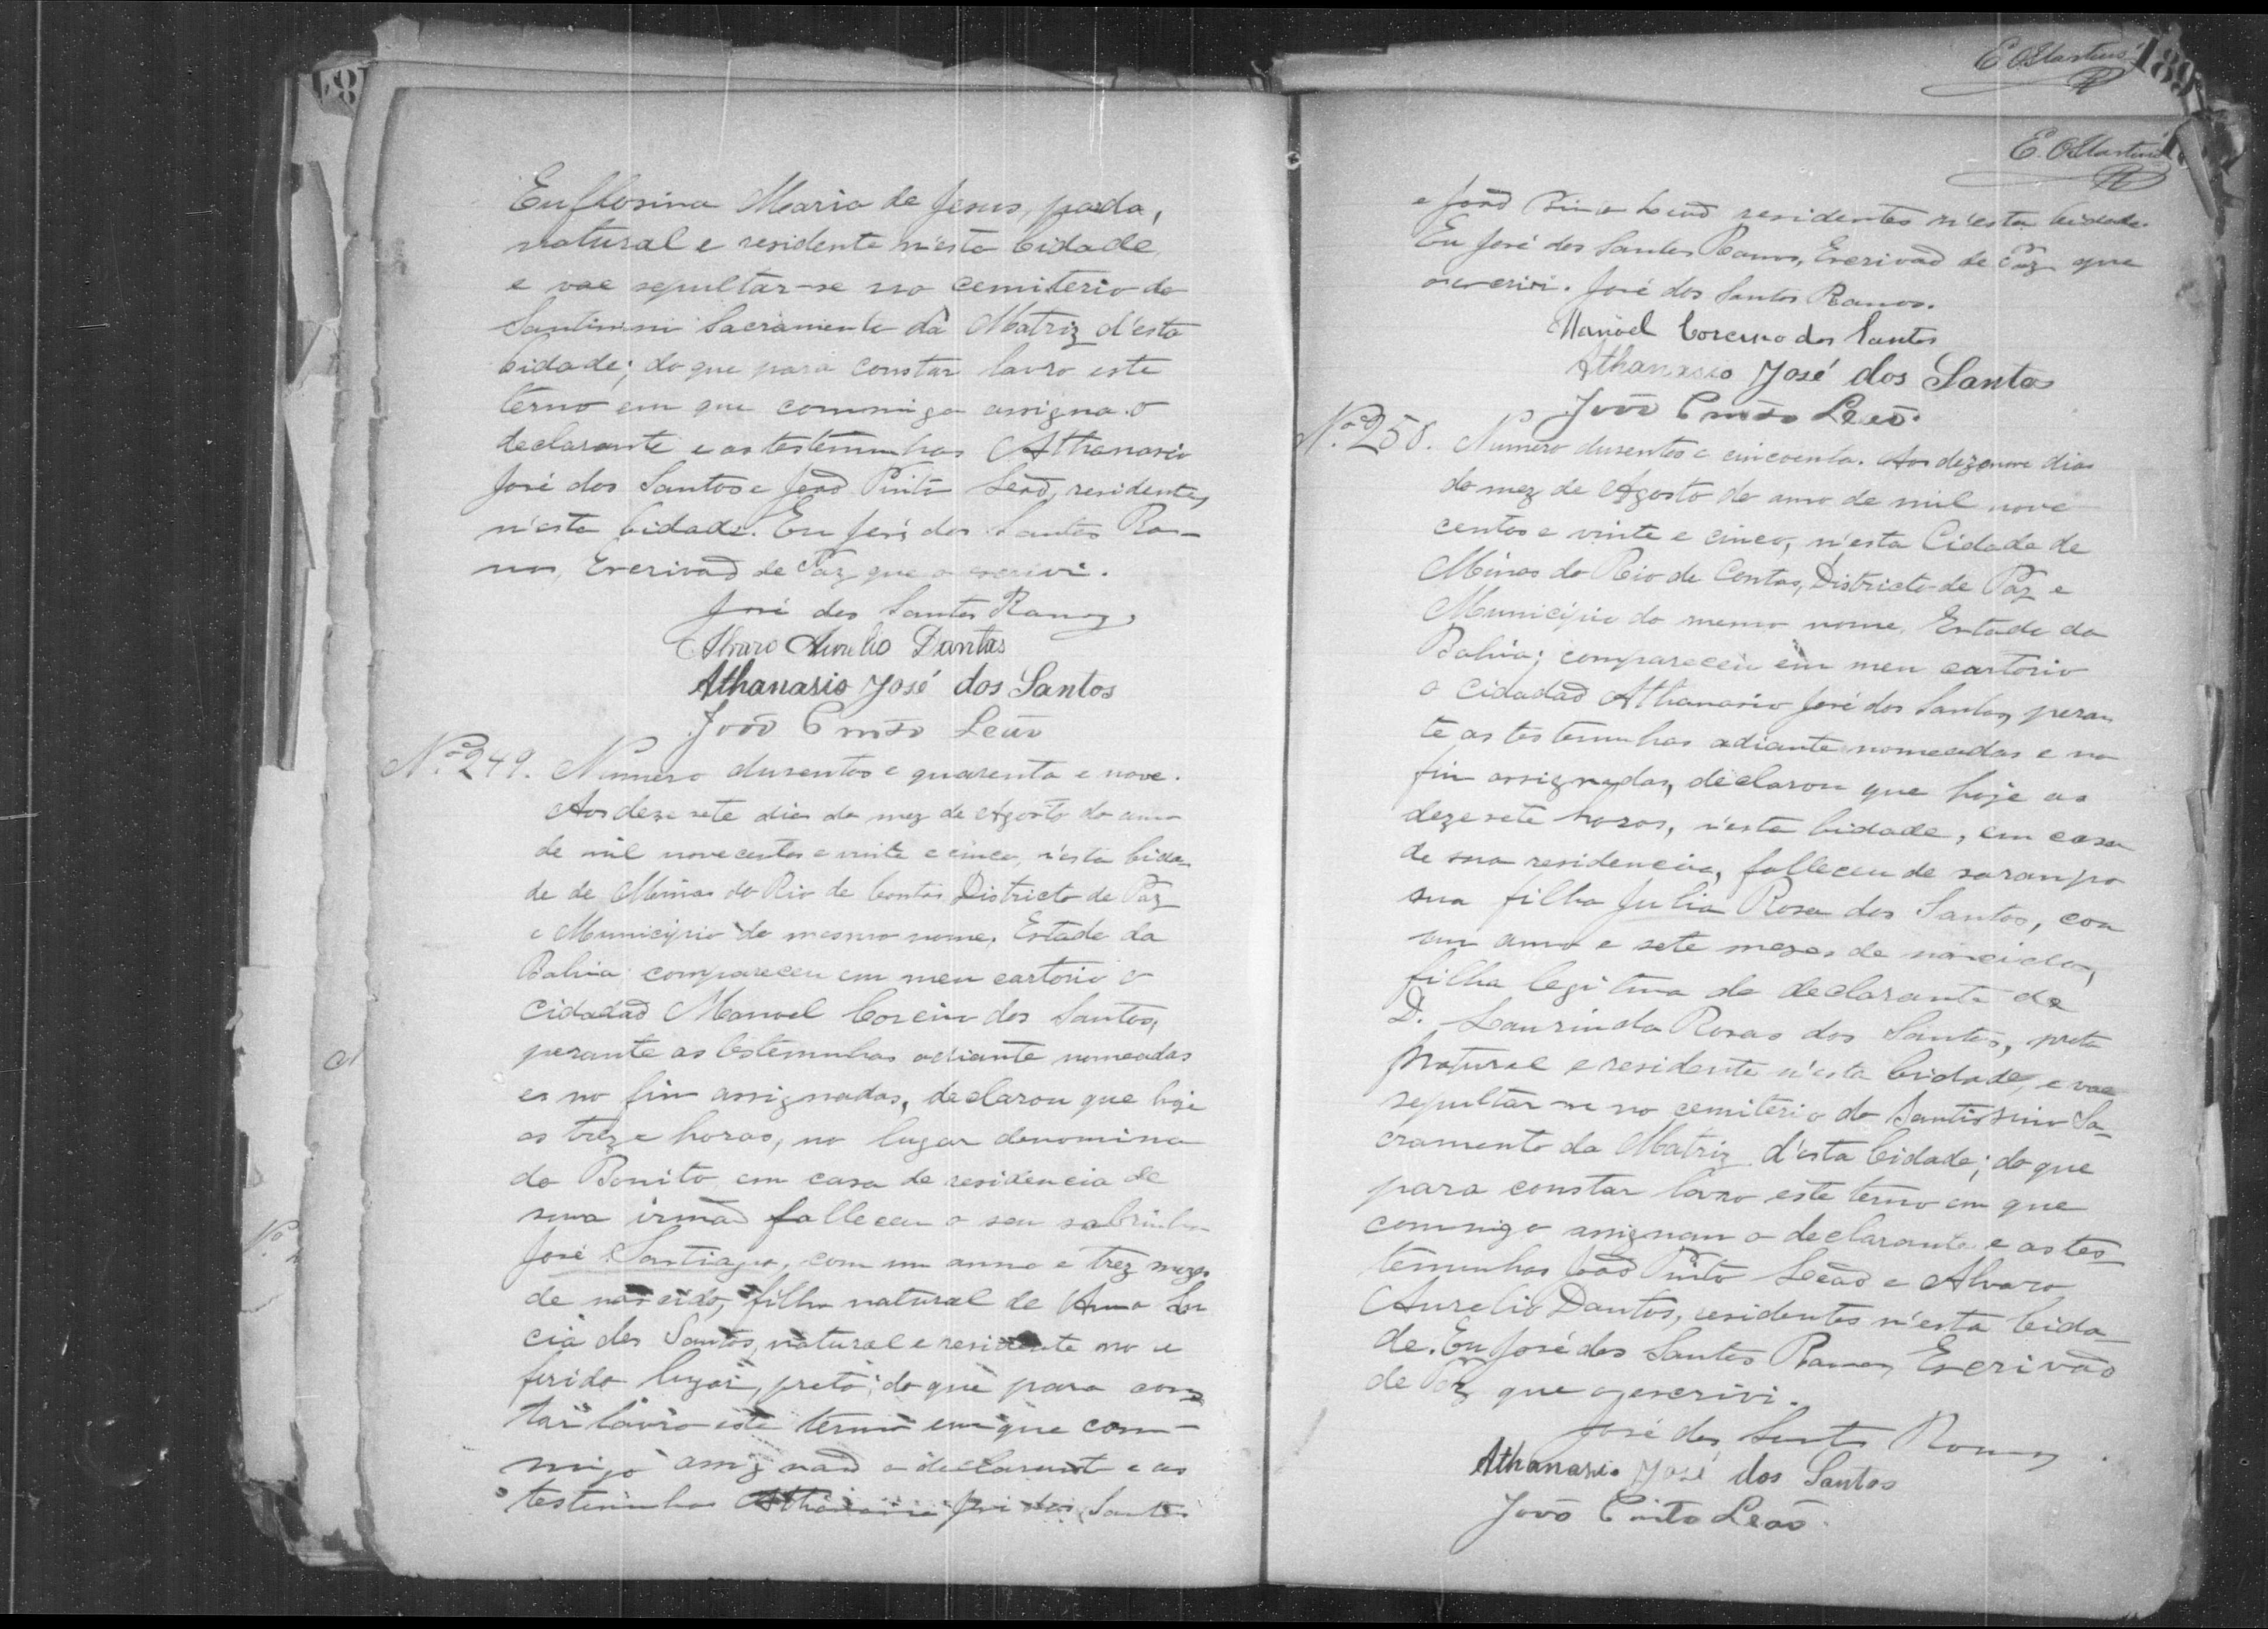 Euflosina Maria de Jesus, parda,
natural e residente n'esta Cidade
e vae sepultar-se no cemiterio do
Santissimi Sacramento da Matriz d'esta
Cidade; do que para constar lavro este
termo em que commigo assigna o
declarante e as testemunhas Athanasio
José dos Santos e João Pinto Leão, residentes
n'esta Cidade. Eu José dos Santos Ra-
mos, Escrivaõ de Paz que o escrivi.
José dos Santos Ramos,
Alvaro Aurelio Dantas
Athanasio José dos Santos
João Pinto Leão
Nº 249. Numero dusentos e quarenta e nove.
Aos deze sete dias do mez de Agosto do anno
de mil novecentos e vinte e cinco, n'esta Cida-
de de Minas do Rio de Contas Districto de Paz
e Municipio do mesmo nome, Estado da
Bahia compareceu em meu cartorio o
cidadaõ Manoel Corcino dos Santos,
perante as testemunhas adiante nomeadas
es no fim assignadas, declarou que hoje
as treze horas, no lugar denomina
do Bonito em casa de residencia de
sua irmaã falleceu o seu sobrinho
José Santiago, com um anno e trez mezes
de nascido, filho natural de Anna Lu
cia dos Santos, natural e residente no re
ferido lugar, preto; do que para cons
tar lavro este termo em que com-
migo assignaõ o declarante e as
testemunhas Athanasio José dos Santos
E. O. Martins
189
E. O. Martins
e João Pinto Leaõ residentes n'esta Cidade.
Eu José dos Santos Ramos, Escrivaõ de Paz que
o escrivi. José dos Santos Ramos.
Manoel Corcino dos Santos
Athanasio José dos Santos
João Pinto Leão.
Nº 250. Numero dusentos e cincoenta. Aos dezenove dias
do mez de Agosto do anno de mil nove
centos e vinte e cinco, n'esta Cidade de
Minas do Rio de Contas, Districto de Paz e
Municipio do mesmo nome, Estado da
Bahia; compareceu em meu cartorio
o cidadaõ Athanasio José dos Santos, peran
te as testemunhas adiante nomeadas e no
fim assignadas, declarou que hoje as
dezesete horas, n'esta Cidade, em casa
de sua residencia, falleceu de sarampo
sua filha Julia Rosa dos Santos, com
um anno e sete mezes de nascida,
filha legitima do declarante de
D. Laurinda Rosas dos Santos, preta
natural e residente n'esta Cidade, e vae
sepultar-se no cemiterio do Santissimo Sa-
cramento da Matriz d'esta Cidade; do que
para constar lavro este termo em que
commigo assignam o declarante e as tes-
temunhas João Pinto Leão e Alvaro
Aurelio Dantas, residentes n'esta Cida-
de. Eu José dos Santos Ramos, Escrivão
de Paz que o escrivi.
José dos Santos Ramos
Athanasio José dos Santos
João Pinto Leão.